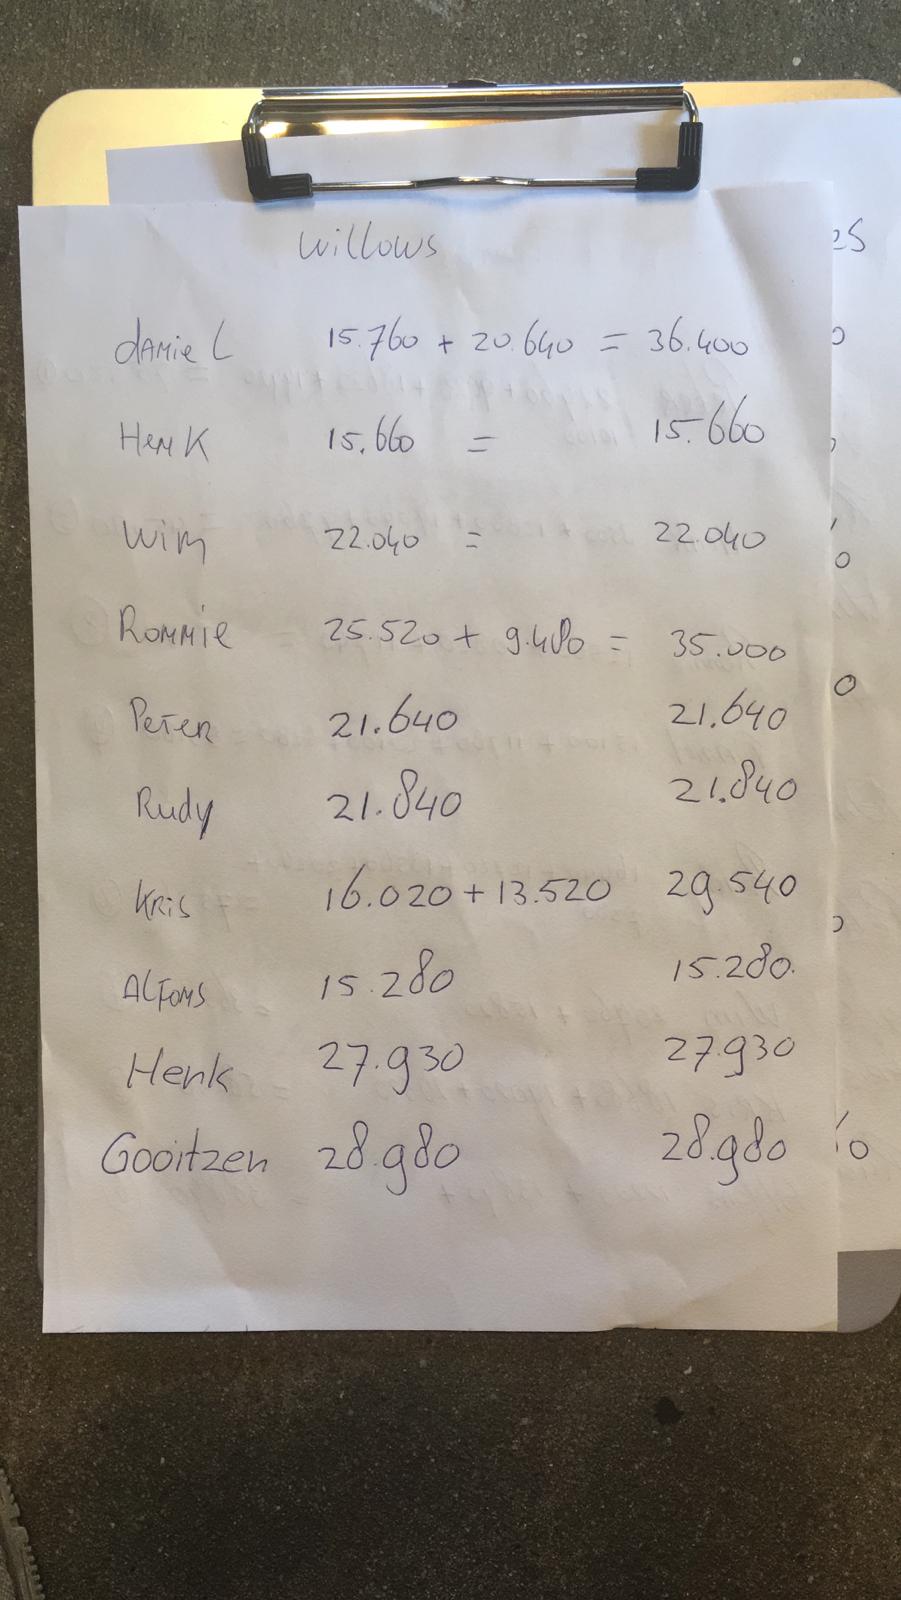 Willows
DANIEL 15.760 + 20.640 = 36.400
HENK 15.660 = 15.660
WIM 22.040 = 22.040
RONNIE 25.520 + 9.480 = 35.000
PETER 21.640 21.640
Rudy 21.840 21.840
KRIS 16.020 + 13.520 29.540
ALFONS 15.280 15.280.
Henk 27.930 27.930
Gooitzen 28.980 28.980